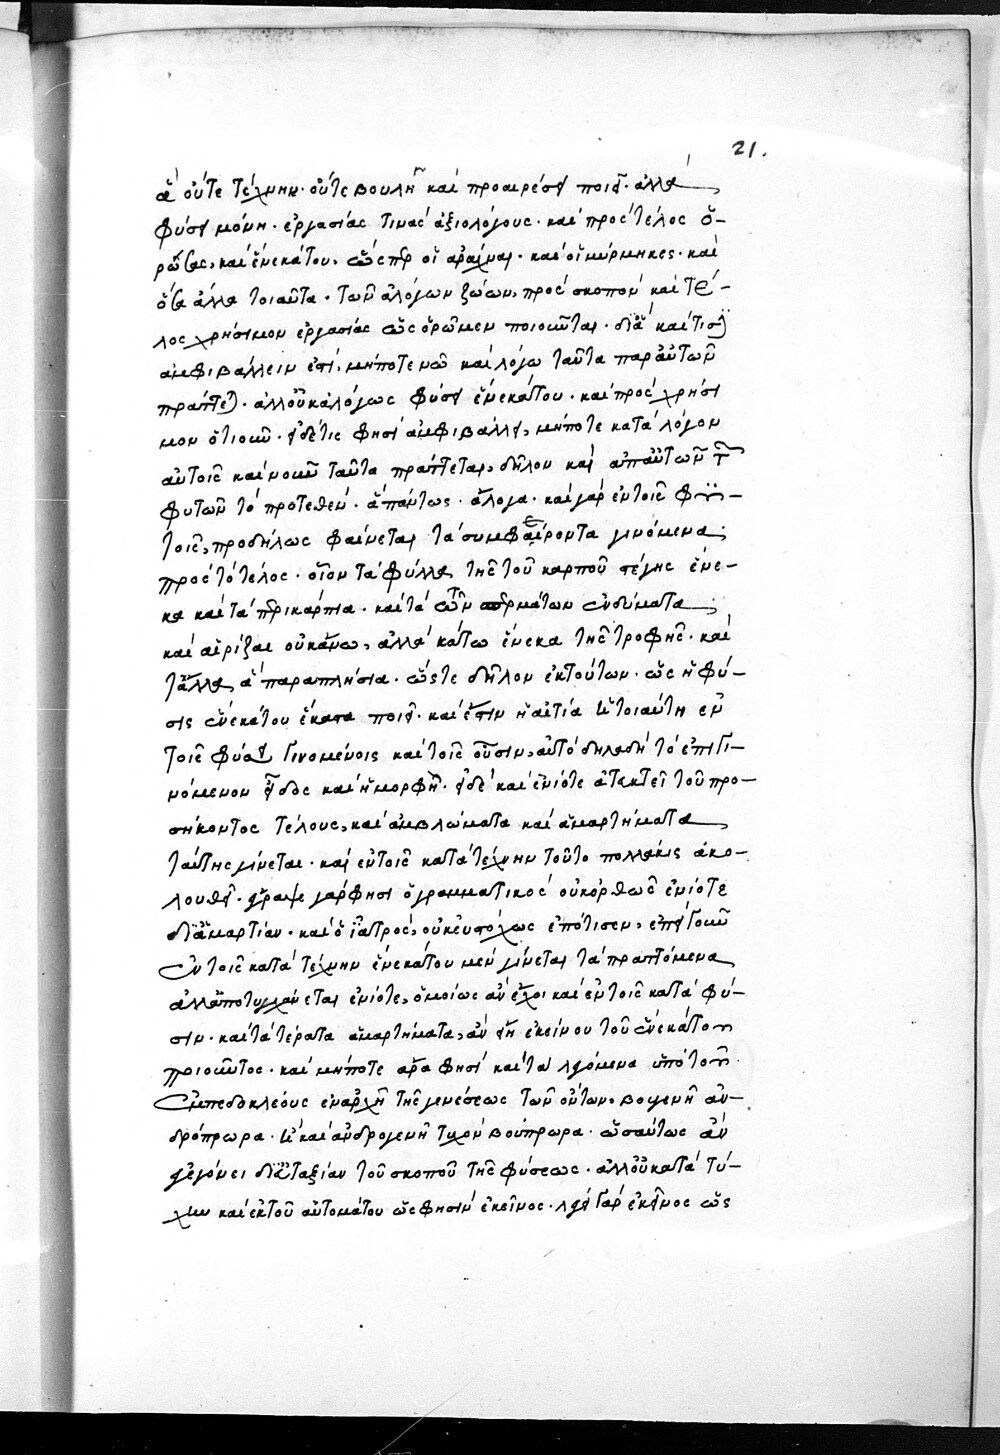 21.
ἃ οὔτε τέχνην· οὔτε βουλῆ καὶ προαιρέσει ποιεῖ· ἀλλὰ
φύσει μόνη· ἐργασίας τινὰς ἀξιολόγους· καὶ πρὸς τέλος ὁ-
ρώσας, καὶ ἕνεκά του, ὥσπερ οἱ ἀράχναι· καὶ οἱ μύρμηκες· καὶ
ὅσα ἄλλα τοιαῦτα· τῶν ἀλόγων ζώων, πρὸς σκοπὸν καὶ τέ-
λος χρήσιμον ἐργασίας ὡς ὁρῶμεν ποιοῦνται· δι' ἃ καί τισιν
ἀμφιβάλλειν ἔστι, μήποτε νῶ καὶ λόγω ταῦτα παρ' αὐτῶν
πράττεται· ἀλλ' οὐκ ἀλόγως φύσει ἕνεκά του· καὶ πρὸς χρήσι
μον ὁτιοῦν· εἰ δέ τις φησὶ ἀμφιβάλλει, μήποτε κατὰ λόγον
αὐτοῖς καὶ νοῦν ταῦτα πράττεται, δῆλον καὶ ἀπ' αὐτῶν τῶν
φυτῶν τὸ προτεθέν· ἃ πάντως· ἄλογα· καὶ γὰρ ἐν τοῖς φυ-
τοῖς, προδήλως φαίνεται τὰ συμφέροντα γινόμενα
πρὸς τὸ τέλος· οἷον τὰ φύλλα τῆς τοῦ καρποῦ στέγης ἕνε-
κα καὶ τὰ περικάρπια· καὶ τὰ τῶν σπερμάτων ἐνδύματα
καὶ αἱ ρίζαι οὐκ ἄνω, ἀλλὰ κάτω ἕνεκα τῆς τροφῆς· καὶ
τἆλλα ἃ παραπλήσια· ὥστε δῆλον ἐκ τούτων· ὡς ἡ φύ-
σις ἕνεκά του ἕκαστα ποιεῖ· καὶ ἔστιν ἡ αἰτία ἡ τοιαύτη ἐν
τοῖς φύσει γινομένοις καὶ τοῖς οὖσιν, αὐτὸ δηλαδὴ τὸ ἐπιγι-
νόμενον εἶδος καὶ ἡ μορφή· εἰ δὲ καὶ ἐνίοτε ἀτακτεῖ τοῦ προ-
σήκοντος τέλους, καὶ ἀμβλώματα καὶ ἁμαρτήματα
ταύτης γίνεται· καὶ ἐν τοῖς κατὰ τέχνην τοῦτο πολλάκις ἀκο-
λουθεῖ· ἔγραψε γάρ φησι ὁ γραμματικὸς οὐκ ὀρθῶς ἐνίοτε
δι' ἁμαρτίαν· καὶ ὁ ἰατρὸς, οὐκ εὐστόχως ἐπότισεν, ἐπεὶ γοῦν
ἐν τοῖς κατὰ τέχνην ἕνεκά του μὲν γίνεται τὰ πραττόμενα
ἀλλ' ἀποτυγχάνεται ἐνίοτε, ὁμοίως ἂν ἔχοι καὶ ἐν τοῖς κατὰ φύ-
σιν· καὶ τὰ τέρατα ἁμαρτήματα, ἂν εἴη ἐκείνου τοῦ ἕνεκά του
ποιοῦντος· καὶ μήποτε ἄρα φησὶ καὶ τὰ λεγόμενα ὑπὸ τοῦ
Ἐμπεδοκλέους ἐν ἀρχῆ τῆς γενέσεως τῶν ὄντων, βουγενῆ ἀν-
δρόπρωρα· ἢ καὶ ἀνδρογενῆ τυχὸν βούπρωρα· ὡσαύτως ἂν
γεγόνει δι' ἀταξίαν τοῦ σκοποῦ τῆς φύσεως· ἀλλ' οὐ κατὰ τύ-
χην καὶ ἐκ τοῦ αὐτομάτου ὥς φησιν ἐκεῖνος· λέγει γὰρ ἐκεῖνος ὡς